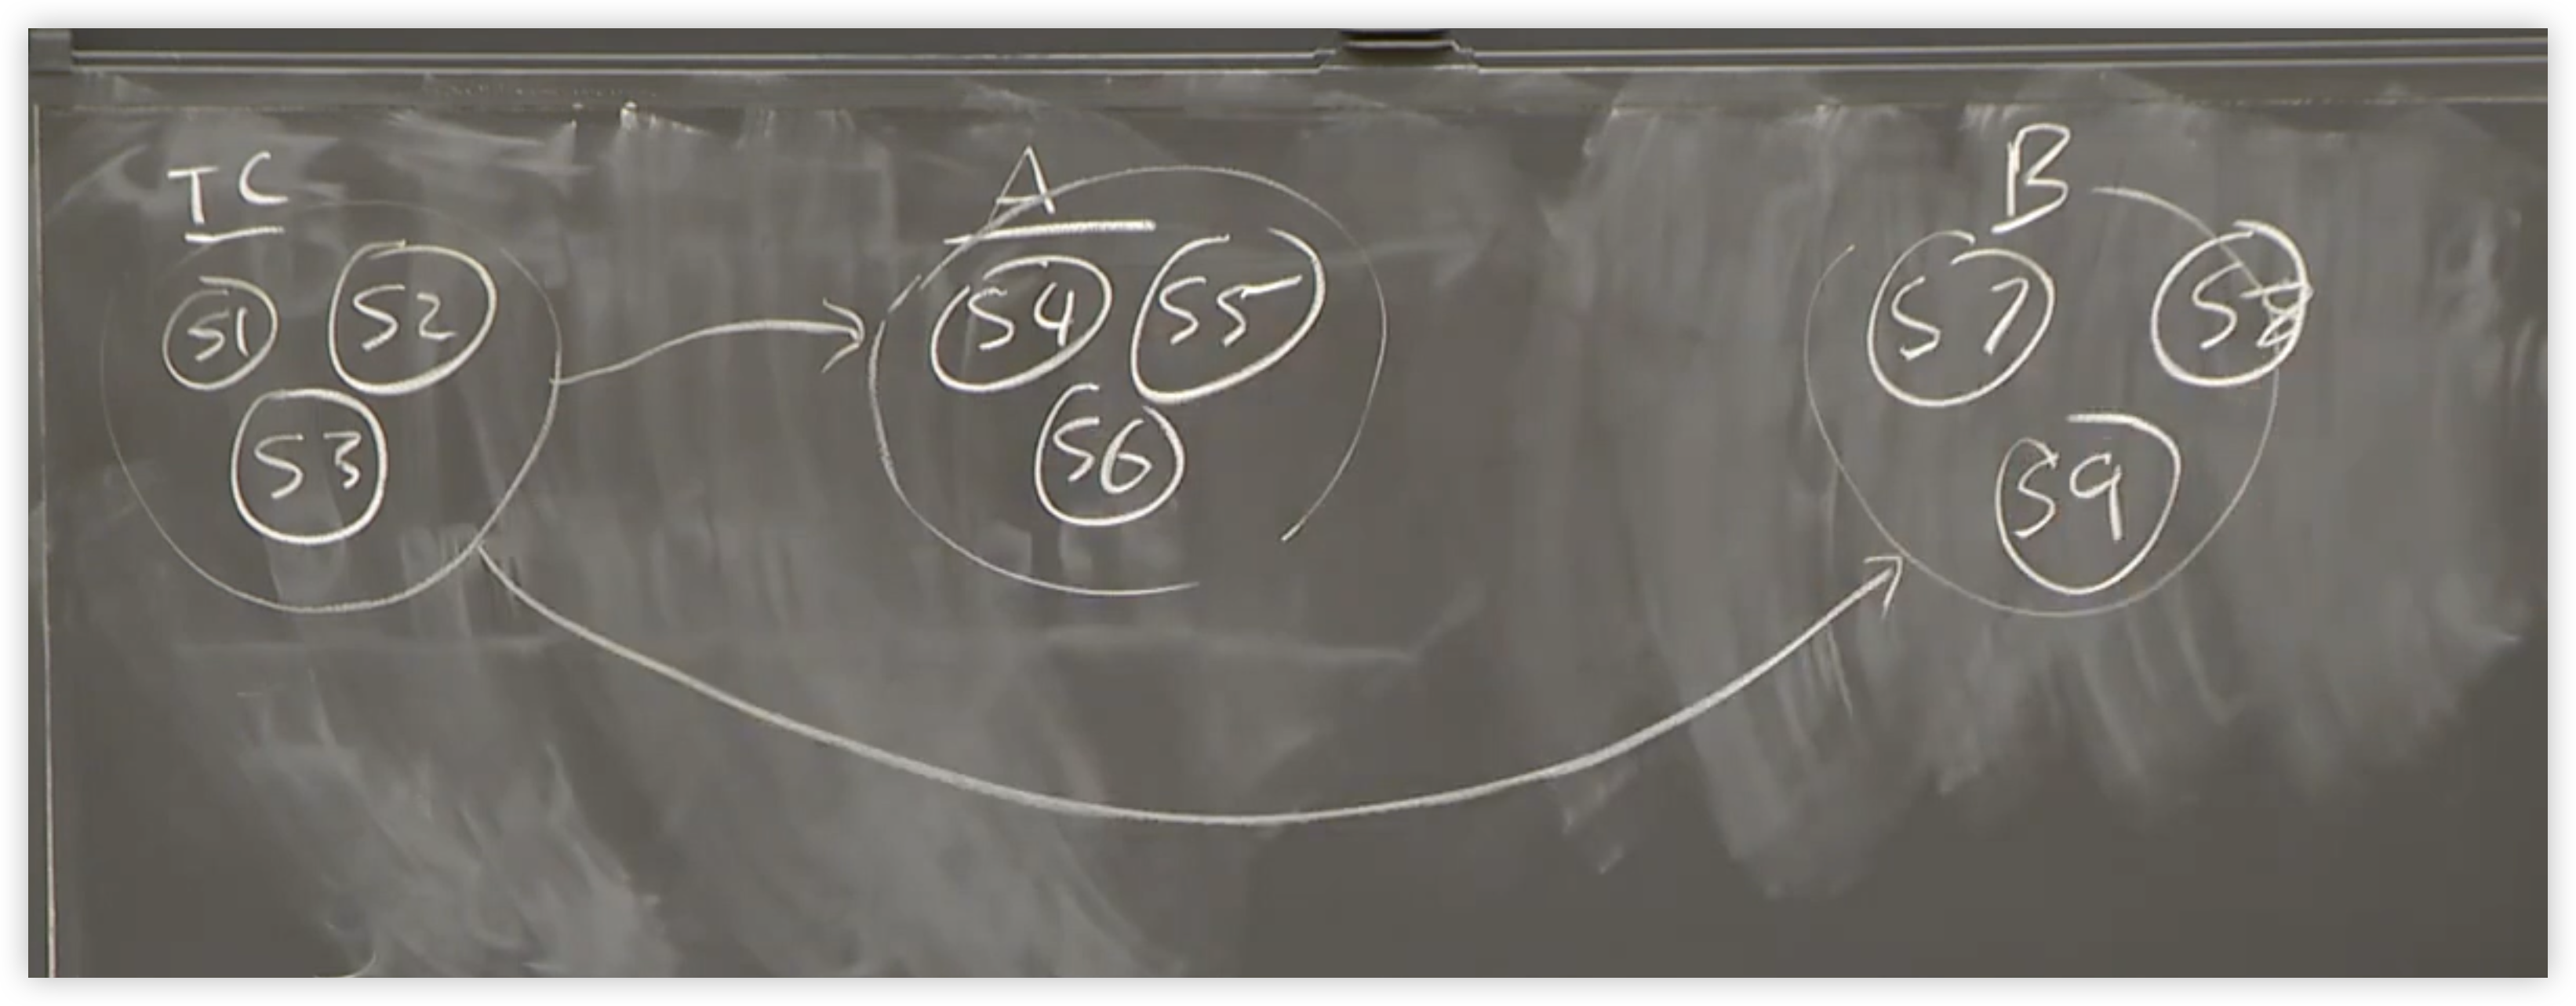 TC
A
B
S1 S2
S3
S4 S5
S6
S7 S8
S9